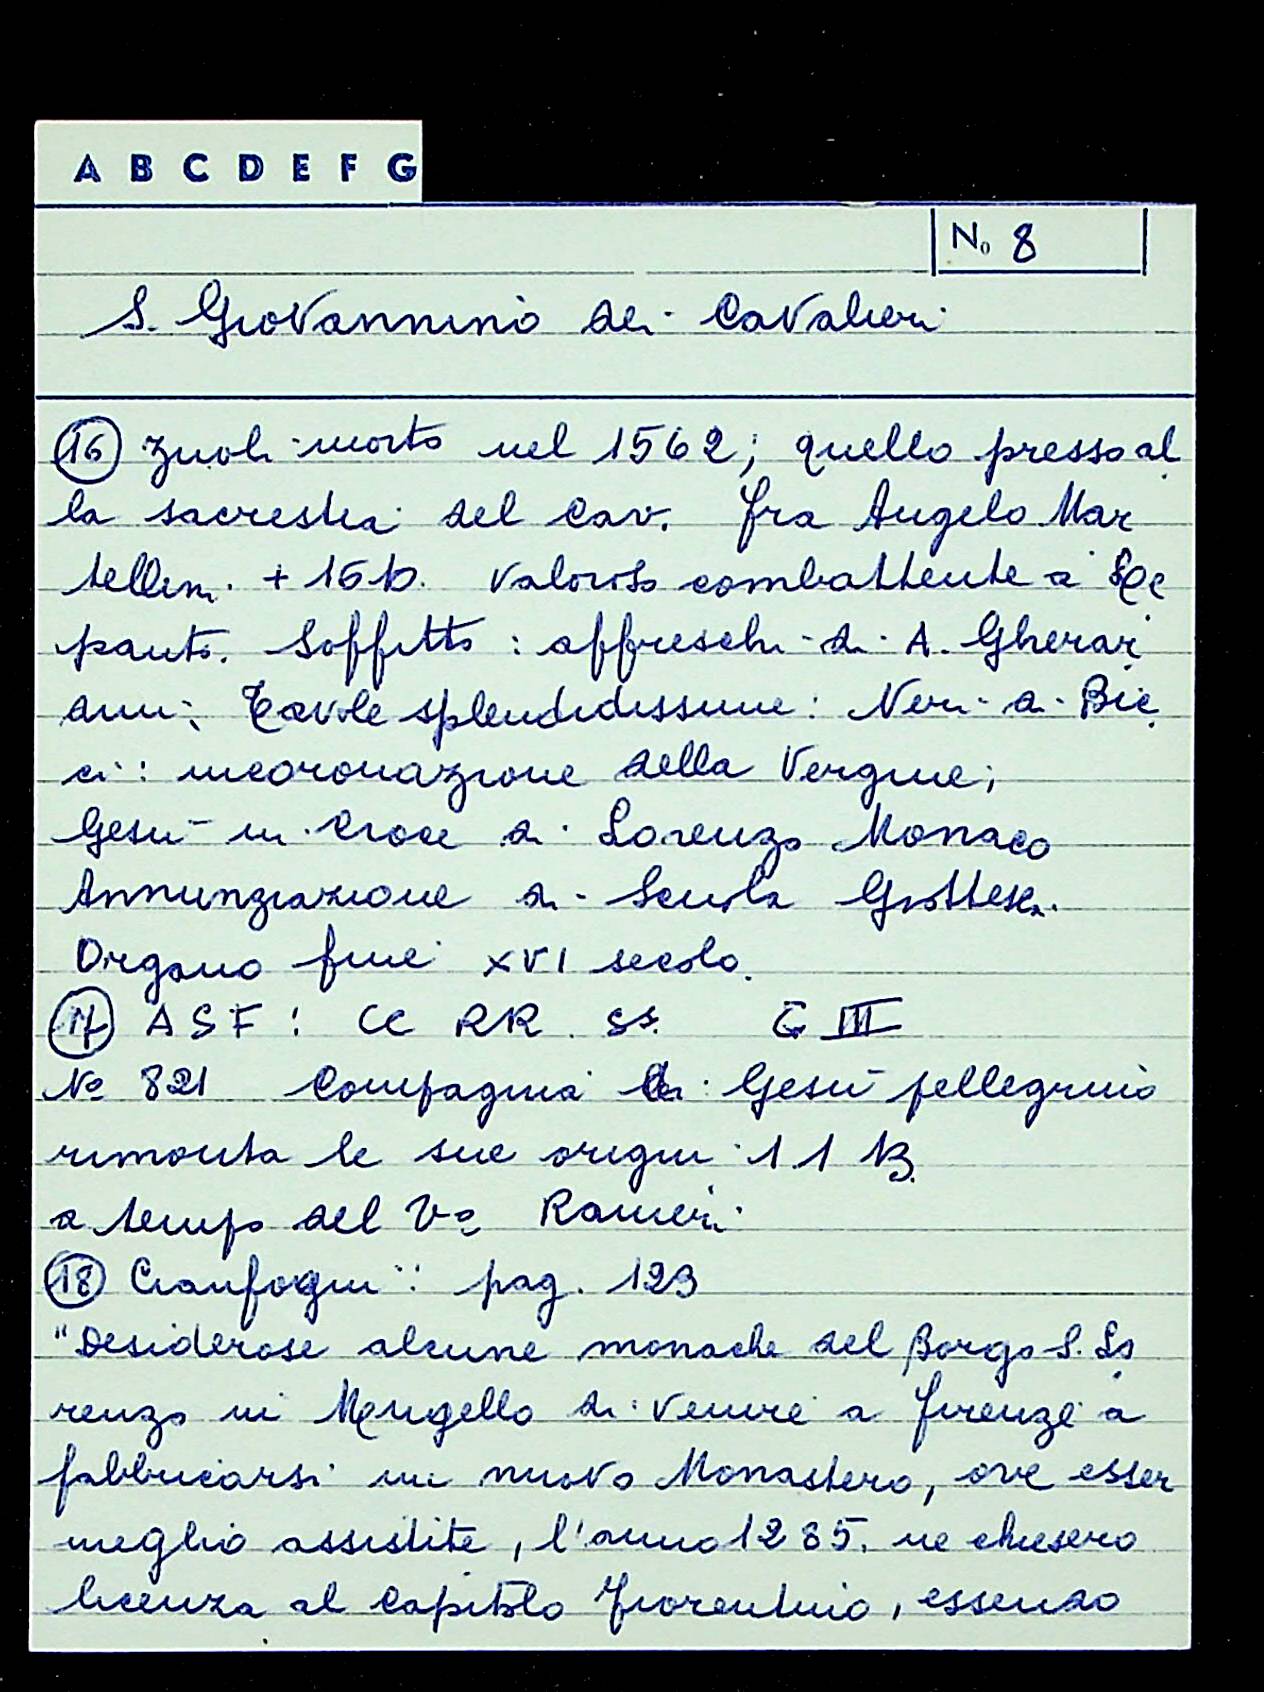 A B C D E F G
No 8
S. Giovannino dei Cavalieri
16 zuoli morto nel 1562; quello presso al
la sacrestia del Cav. fra Angelo Mar
tellini + 16 valoroso combattente a Le
panto. Soffitto: affreschi di A. Gherar
dini; Tavole splendidissime: Neri di Bic
ci: incoronazione della Vergine;
Gesù in Croce di Lorenzo Monaco
Annunziazione di Scuola Giottesca.
Organo fine XVI secolo.
17 ASF: CC RR. ss. G III
No 821 Compagnia di Gesù pellegrino
rimonta le sue origini 11
a tempo del Vo Ranieri
18 Cianfogni: pag. 123
"Desiderose alcune monache del Borgo S. Lo
renzo in Mugello di venire a firenze a
fabbricarsi un nuovo Monastero, ove esser
meglio assistite, l'anno 1285. ne chiesero
licenza al Capitolo fiorentino, essendo